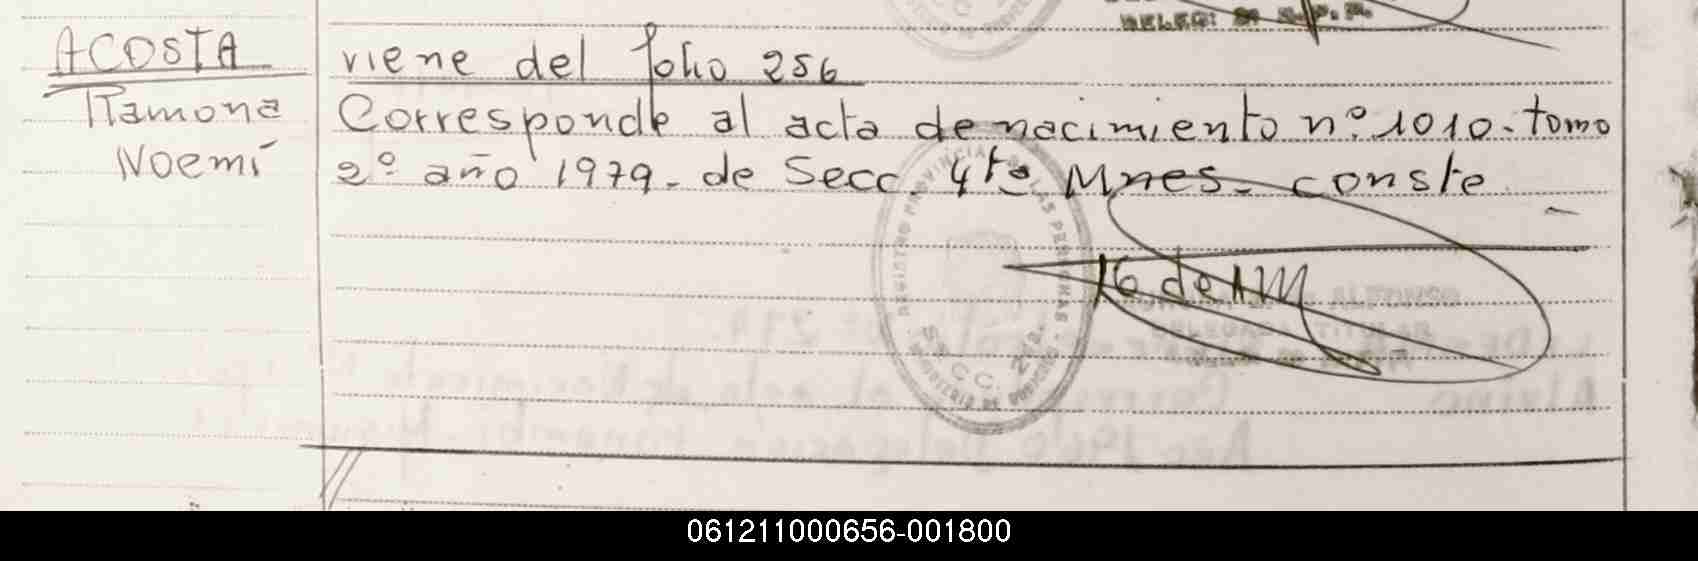 DELEG:
ACOSTA
Ramona
Noemí
viene del folio 256
Corresponde al acta de nacimiento nº 1010. tomo
2º año 1979. de Secc. 4ta Mnes. conste
REGISTRO PROVINCIAL DE LAS PERSONAS
SECC. 2da.
ALFONSO
DELEGADA TITULAR
061211000656-001800